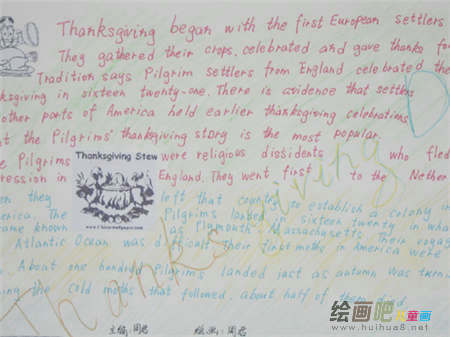 Thanksgiving began with the first European settlers
They gathered their crops, celebrated and gave thanks for
Tradition says Pilgrim settlers from England celebrated the
ksgiving in sixteen twenty-one. There is avidence that settlers
other parts of America held earlier thanksgiving celebrations
t the Pilgrims' thanksgiving story is the most popular.
e Pilgrims were religious dissidents who fled
ression in England. They went first to the Nether
Thanksgiving Stew
on they left that country to establish a colony in
erica. The Pilgrims landed in sixteen twenty in what
came known as Plymouth, Massachusetts. Their voyage
Atlantic Ocean was difficult. Their first moths in America were
About one hundred Pilgrims landed just as autumn was turni
ing the cold moths that followed, about half of them died.
Thanksgiving
主编:周君 绘画:周君
绘画吧儿童画
www.huihua8.net